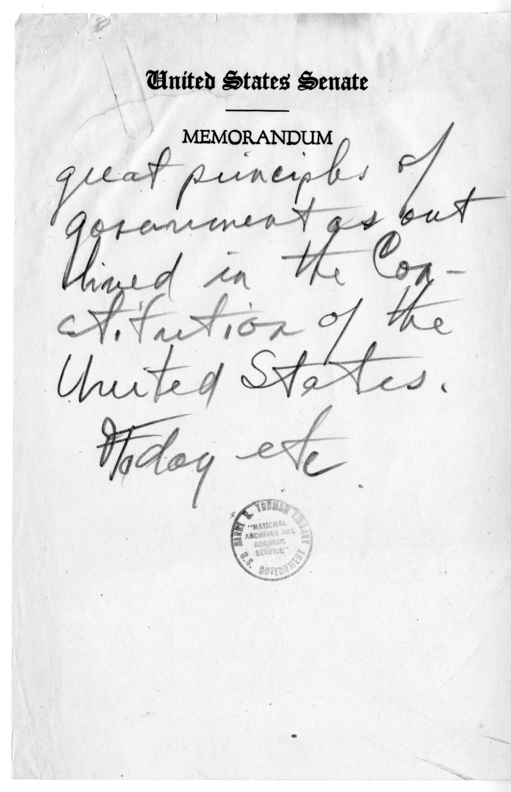 United States Senate
MEMORANDUM
great principles of
government as out
lined in the Con-
stitution of the
United States.
Today etc.
HARRY S. TRUMAN LIBRARY
"NATIONAL
ARCHIVES AND
RECORDS
SERVICE"
U.S. GOVERNMENT